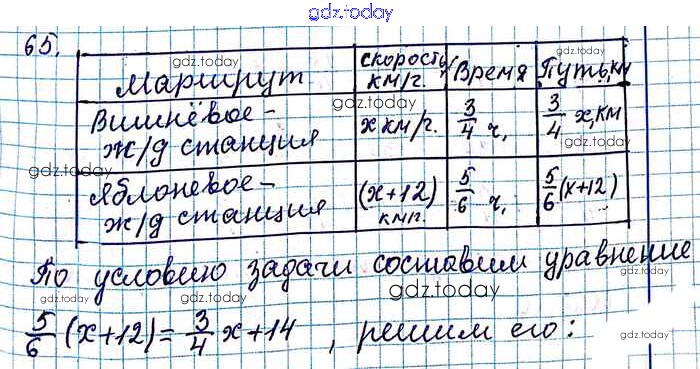 gdz.today
65.
Маршрут | скорость, км/г. | Время | Путь, км
Вишнёвое - ж/д станция | х км/г. | 3/4 ч, | 3/4 х, км
Яблоневое - ж/д станция | (х+12) км/г. | 5/6 ч, | 5/6 (х+12)
По условию задачи составим уравнение
5/6 (х+12) = 3/4 х + 14, решим его:
gdz.today
gdz.today
gdz.today
gdz.today
gdz.today
gdz.today
gdz.today
gdz.today